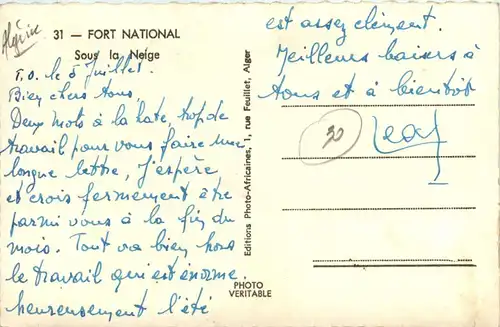 Algérie
31 — FORT NATIONAL
Sous la Neige
T.O. le 5 Juillet.
Bien chers tous,
Deux mots à la hate, trop de
travail pour vous faire une
longue lettre, J'espère
et crois fermement être
parmi vous à la fin du
mois. Tout va bien hors
le travail qui est énorme.
heureusement l'été
est assez clément.
Meilleurs baisers à
tous et à bientôt
30
Editions Photo-Africaines, 1, rue Feuillet, Alger
PHOTO
VERITABLE